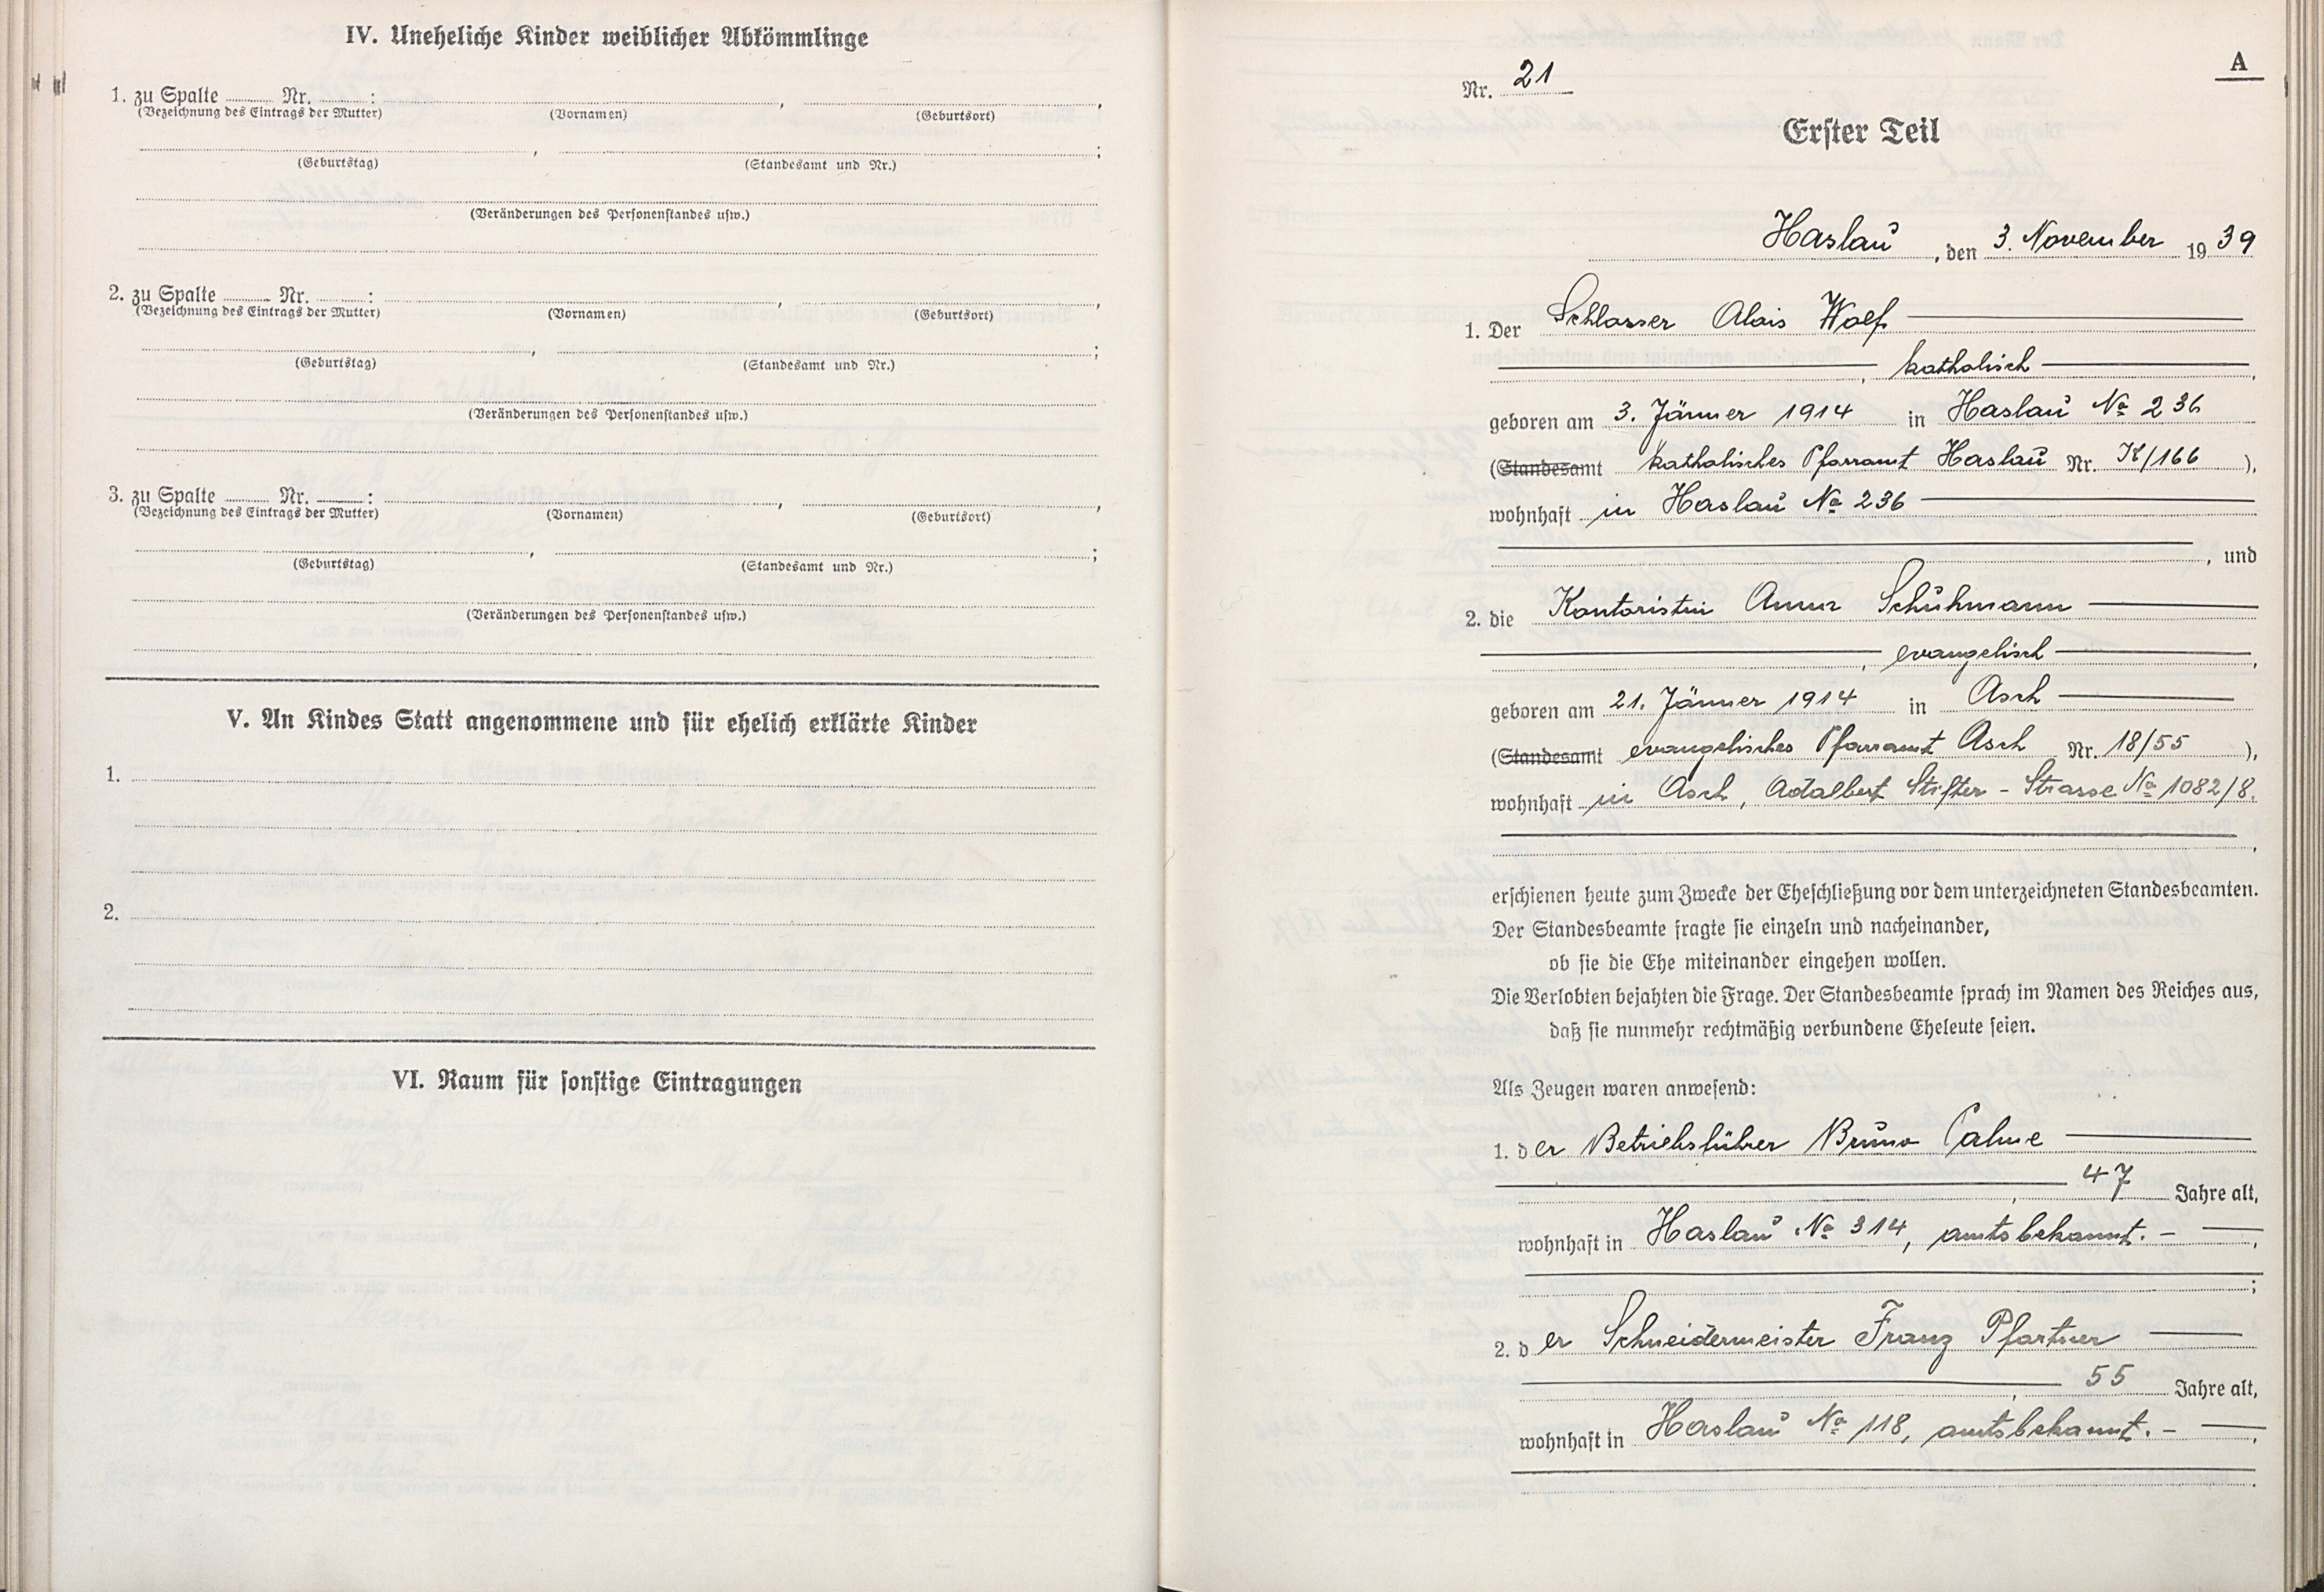 IV. Uneheliche Kinder weiblicher Abkömmlinge
1. zu Spalte ........ Nr. ........ :
(Bezeichnung des Eintrags der Mutter) (Vornamen) (Geburtsort)
(Geburtstag) (Standesamt und Nr.)
(Veränderungen des Personenstandes usw.)
2. zu Spalte ........ Nr. ........ :
(Bezeichnung des Eintrags der Mutter) (Vornamen) (Geburtsort)
(Geburtstag) (Standesamt und Nr.)
(Veränderungen des Personenstandes usw.)
3. zu Spalte ........ Nr. ........ :
(Bezeichnung des Eintrags der Mutter) (Vornamen) (Geburtsort)
(Geburtstag) (Standesamt und Nr.)
(Veränderungen des Personenstandes usw.)
V. An Kindes Statt angenommene und für ehelich erklärte Kinder
1.
2.
VI. Raum für sonstige Eintragungen
A
Nr. 21
Erster Teil
Haslau, den 3. November 1939
1. Der Schlosser Alois Wolf
, katholisch,
geboren am 3. Jänner 1914 in Haslau № 236
(Standesamt katholisches Pfarramt Haslau Nr. K/166),
wohnhaft in Haslau № 236
, und
2. die Kontoristin Anna Schuhmann
, evangelisch,
geboren am 21. Jänner 1914 in Asch
(Standesamt evangelisches Pfarramt Asch Nr. 18/55),
wohnhaft in Asch, Adalbert Stifter - Strasse № 1082/8.
,
erschienen heute zum Zwecke der Eheschließung vor dem unterzeichneten Standesbeamten.
Der Standesbeamte fragte sie einzeln und nacheinander,
ob sie die Ehe miteinander eingehen wollen.
Die Verlobten bejahten die Frage. Der Standesbeamte sprach im Namen des Reiches aus,
daß sie nunmehr rechtmäßig verbundene Eheleute seien.
Als Zeugen waren anwesend:
1. der Betriebsführer Bruno Calme
, 47 Jahre alt,
wohnhaft in Haslau № 314, amtsbekannt. - ,
;
2. der Schneidermeister Franz Pfortner
, 55 Jahre alt,
wohnhaft in Haslau № 118, amtsbekannt. - ,